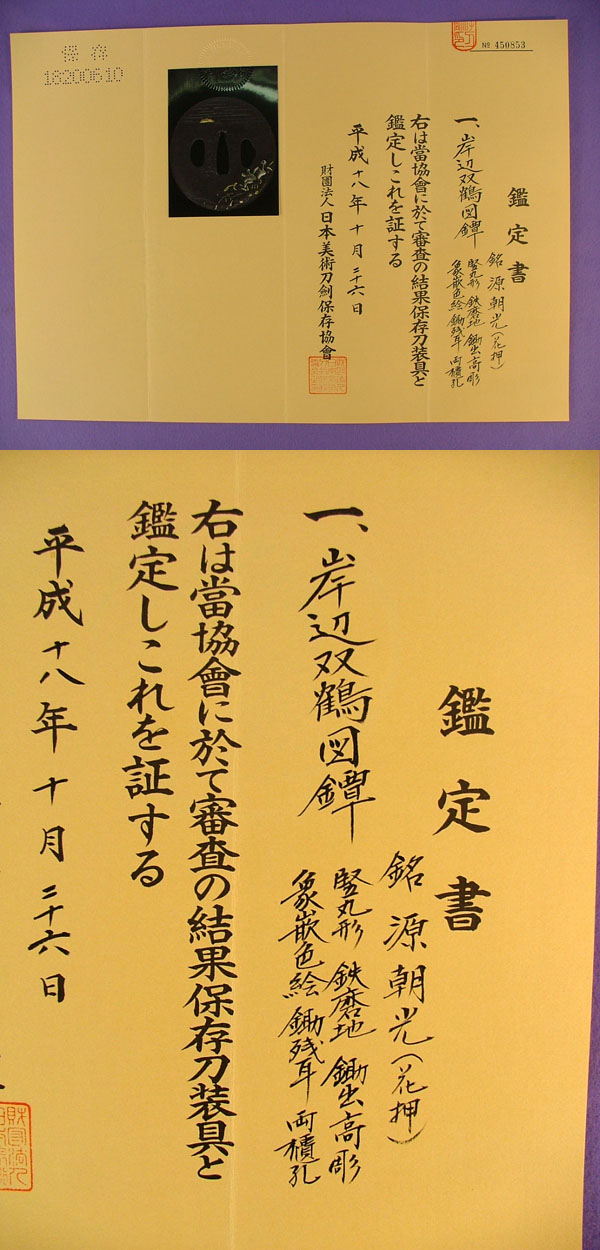 保存
18200610
№ 450853
鑑定書
一、岸辺双鶴図鐔
銘 源朝光(花押)
竪丸形 鉄磨地 鋤出高彫
象嵌色絵 鋤残耳 両櫃孔
右は當協會に於て審査の結果保存刀装具と
鑑定しこれを証する
平成十八年十月二十六日
財團法人日本美術刀劍保存協會
鑑定書
一、岸辺双鶴図鐔
銘 源朝光(花押)
竪丸形 鉄磨地 鋤出高彫
象嵌色絵 鋤残耳 両櫃孔
右は當協會に於て審査の結果保存刀装具と
鑑定しこれを証する
平成十八年十月二十六日